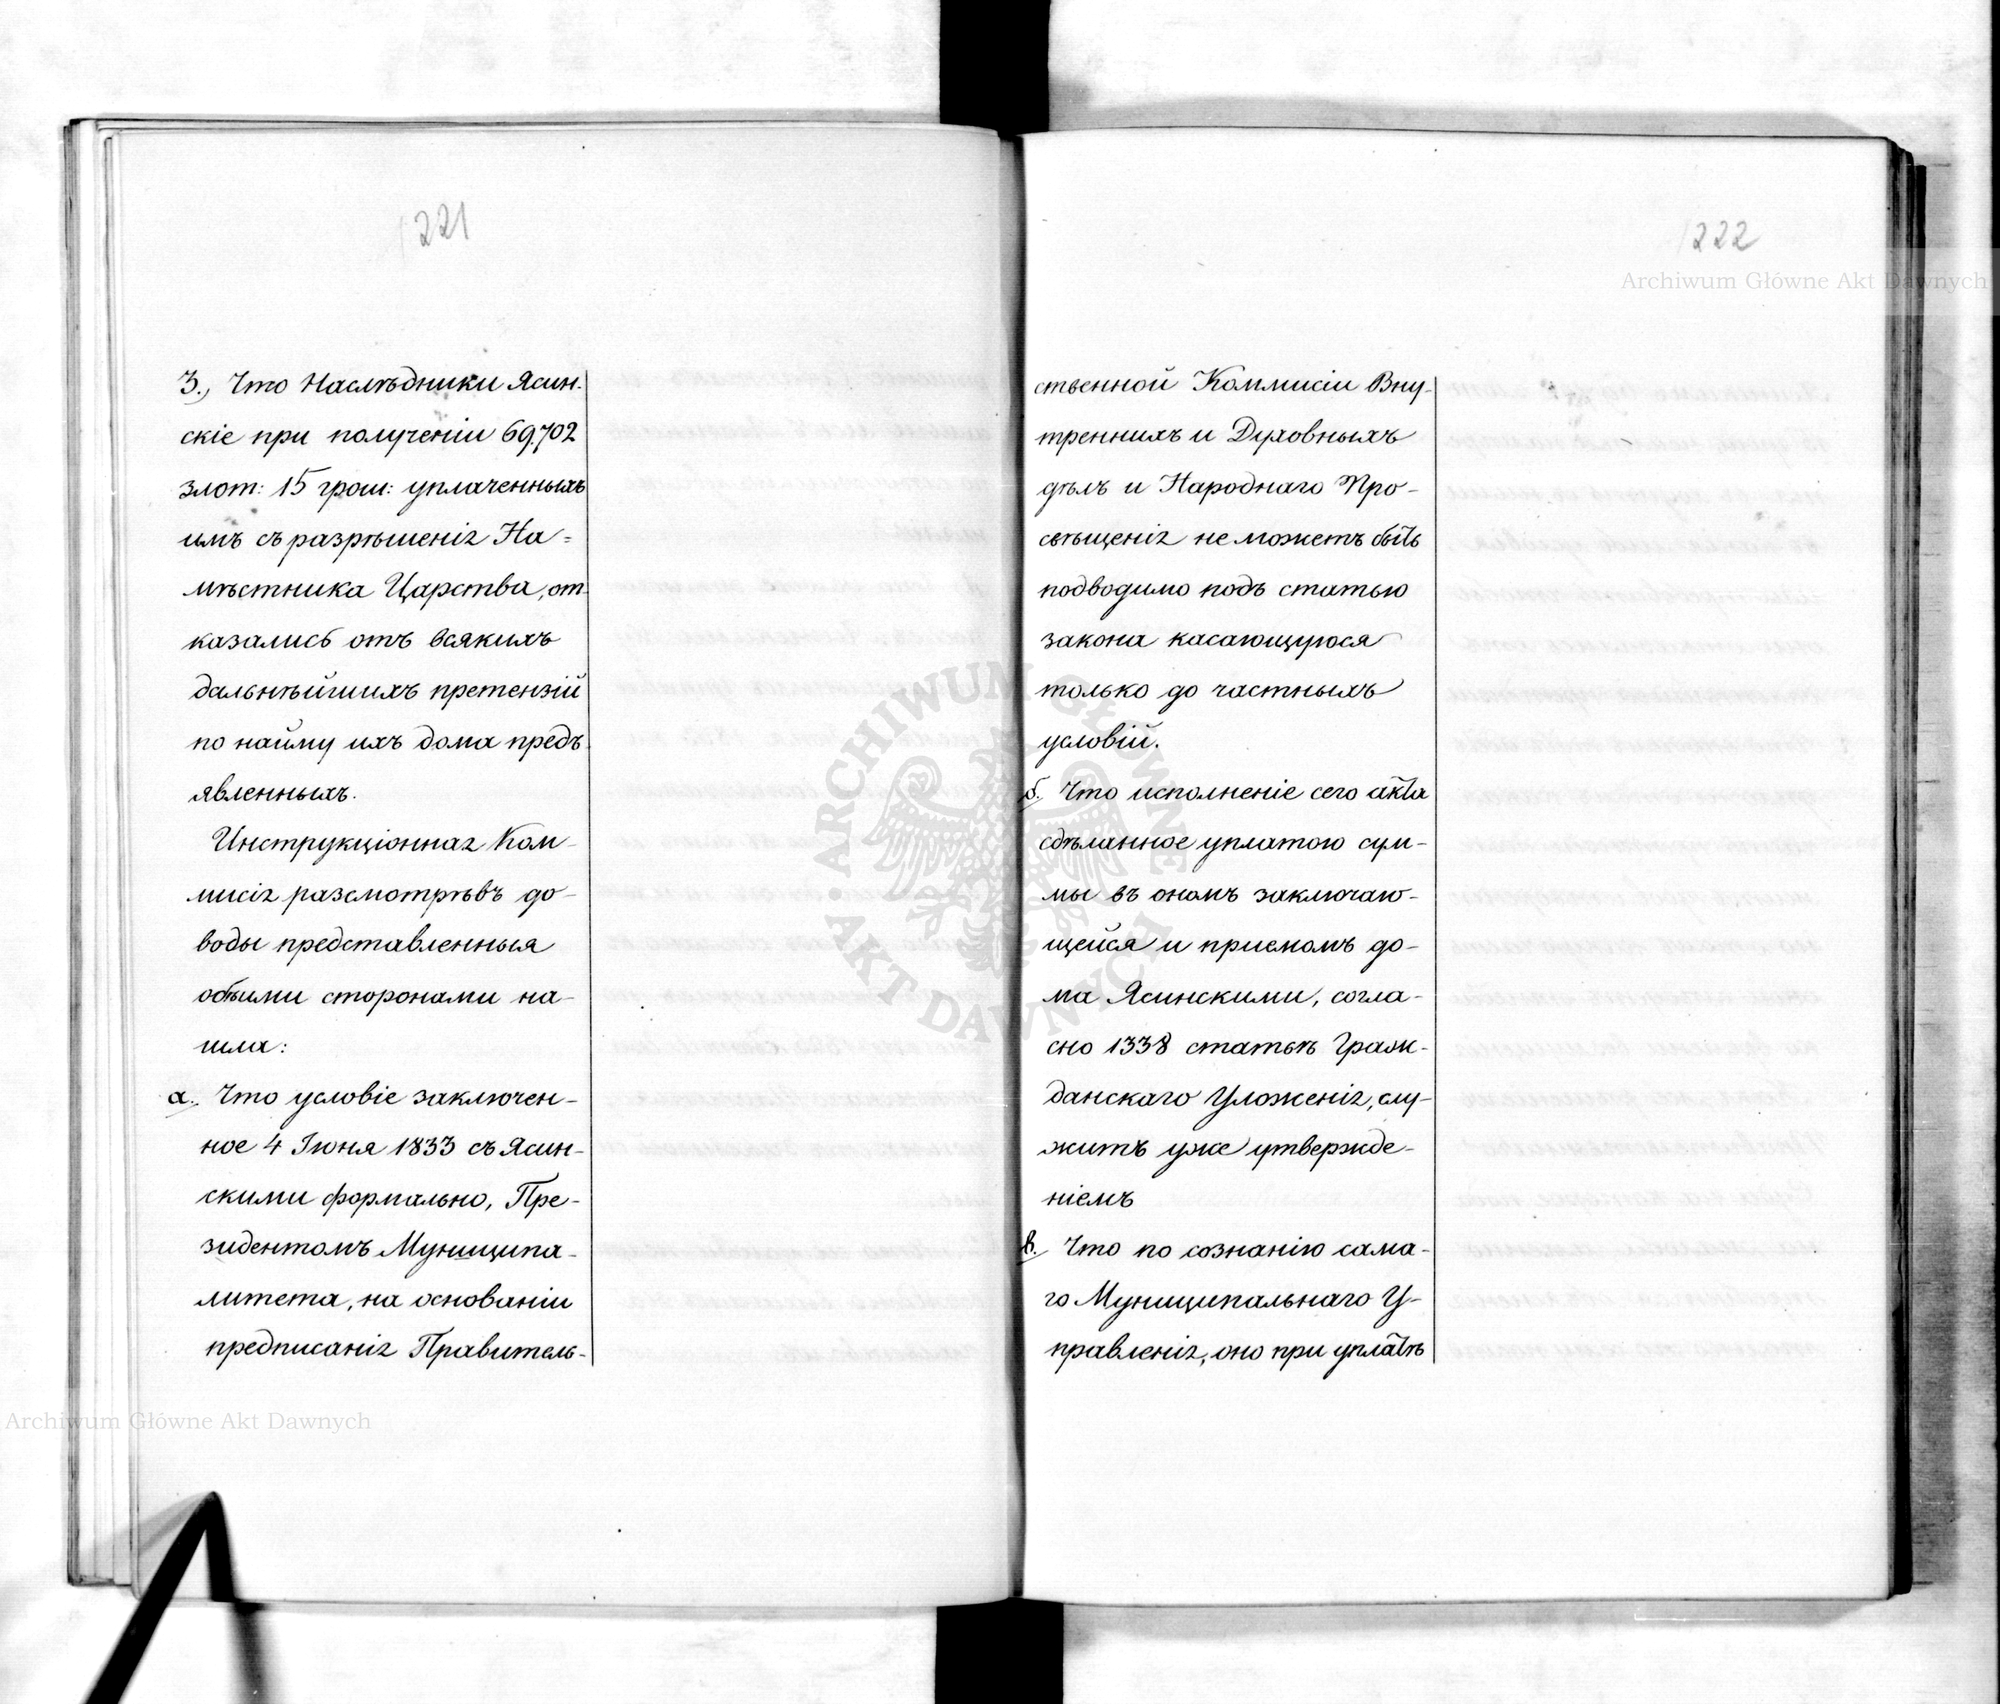 221
3., Что Наслѣдники Ясин-
скіе при полученіи 69,702
злот: 15 грош: уплаченныхъ
имъ съ разрѣшенія На=
мѣстника Царства, от-
казались отъ всякихъ
дальнѣйшихъ претензій
по найму ихъ дома предъ-
явленныхъ.
Инструкціонная Ком-
мисія разсмотрѣвъ до-
воды представленныя
обѣими сторонами на-
шла:
а., Что условіе заключен-
ное 4 Іюня 1833 съ Ясин-
скими формально, Пре-
зидентомъ Муниципа-
литета, на основаніи
предписанія Правитель-
222
ственной Коммисіи Вну-
треннихъ и Духовныхъ
дѣлъ и Народнаго Про-
свѣщенія не можетъ быть
подводимо подъ статью
закона касающуюся
только до частныхъ
условій.
б., Что исполненіе сего акта
сдѣланное уплатою сум-
мы въ ономъ заключаю-
щейся и пріемомъ до-
ма Ясинскими, согла-
сно 1338 статьѣ Граж-
данскаго Уложенія, слу-
житъ уже утвержде-
ніемъ
в., Что по сознанію сама-
го Муниципальнаго У-
правленія, оно при уплатѣ
Archiwum Główne Akt Dawnych
Archiwum Główne Akt Dawnych
ARCHIWUM GŁÓWNE AKT DAWNYCH